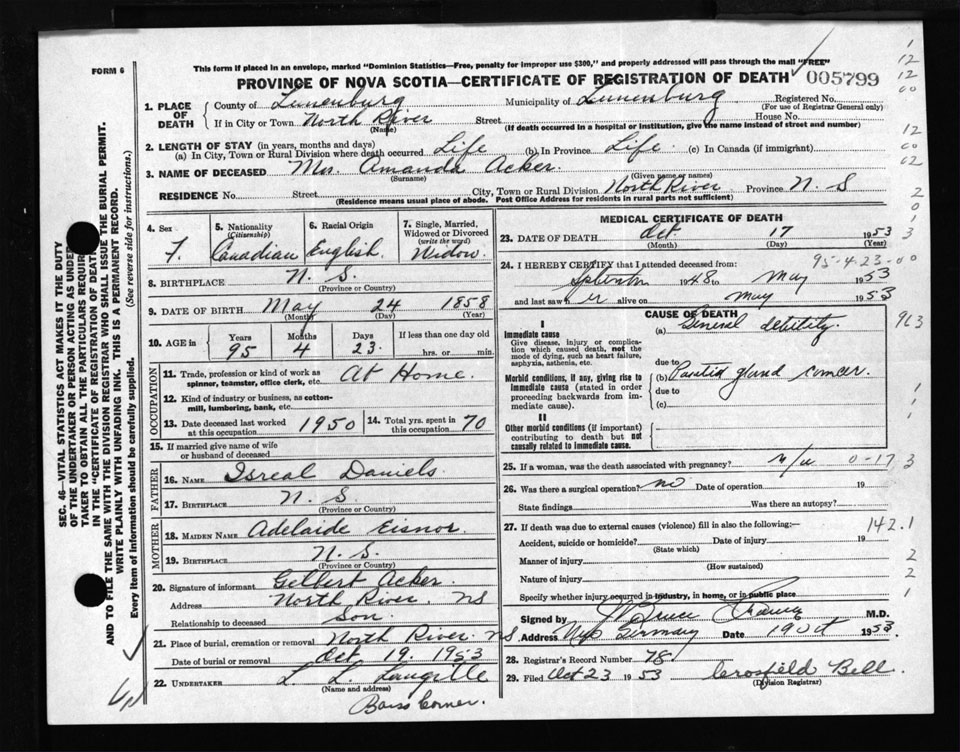 FORM 6
This form if placed in an envelope, marked "Dominion Statistics—Free, penalty for improper use $300," and properly addressed will pass through the mail "FREE"
PROVINCE OF NOVA SCOTIA—CERTIFICATE OF REGISTRATION OF DEATH 005799
1. PLACE OF DEATH County of Lunenburg Municipality of Lunenburg Registered No.
(For use of Registrar General only)
If in City or Town North River Street House No.
(Name) (If death occurred in a hospital or institution, give the name instead of street and number)
2. LENGTH OF STAY (in years, months and days)
(a) In City, Town or Rural Division where death occurred Life (b) In Province Life (c) In Canada (if immigrant)
3. NAME OF DECEASED Mrs. Amanda Acker
(Surname) (Given name or names)
RESIDENCE No. Street City, Town or Rural Division North River Province N. S
(Residence means usual place of abode. Post Office Address for residents in rural parts not sufficient)
4. Sex 5. Nationality (Citizenship) 6. Racial Origin 7. Single, Married, Widowed or Divorced (write the word)
F. Canadian English. Widow.
8. BIRTHPLACE N. S.
(Province or Country)
9. DATE OF BIRTH May 24 1858
(Month) (Day) (Year)
10. AGE in Years Months Days If less than one day old
95 4 23 hrs. or min.
OCCUPATION
11. Trade, profession or kind of work as spinner, teamster, office clerk, etc. At Home.
12. Kind of industry or business, as cotton-mill, lumbering, bank, etc.
13. Date deceased last worked at this occupation 1950 14. Total yrs. spent in this occupation 70
15. If married give name of wife or husband of deceased
FATHER
16. NAME Isreal Daniels
17. BIRTHPLACE N. S.
(Province or Country)
MOTHER
18. MAIDEN NAME Adelaide Eisnor
19. BIRTHPLACE N. S.
(Province or Country)
20. Signature of informant Gellert Acker.
Address North River. NS
Relationship to deceased son.
21. Place of burial, cremation or removal North River. NS
Date of burial or removal Oct 19. 1953
22. UNDERTAKER L. L. Langille
(Name and address)
Barss Corner.
MEDICAL CERTIFICATE OF DEATH
23. DATE OF DEATH Oct. 17 1953
(Month) (Day) (Year)
95-4-23-00
24. I HEREBY CERTIFY that I attended deceased from:
September 1948 to May 1953
and last saw her alive on May 1953
CAUSE OF DEATH
I
Immediate cause (a) General debility. 963
Give disease, injury or complication which caused death, not the mode of dying, such as heart failure, asphyxia, asthenia, etc.
due to
Morbid conditions, if any, giving rise to immediate cause (stated in order proceeding backwards from immediate cause). (b) Parotid gland cancer.
due to
(c)
II
Other morbid conditions (if important) contributing to death but not causally related to immediate cause.
25. If a woman, was the death associated with pregnancy? 0-17 3
26. Was there a surgical operation? no Date of operation 19
State findings Was there an autopsy?
27. If death was due to external causes (violence) fill in also the following:— 142.1
Accident, suicide or homicide? Date of injury 19
(State which)
Manner of injury
(How sustained)
Nature of injury
Specify whether injury occurred in industry, in home, or in public place
Signed by M.D.
Address New Germany Date 19 Oct 1953
28. Registrar's Record Number 78
29. Filed Oct 23 1953 Crosfield Bell.
(Division Registrar)
SEC. 46—VITAL STATISTICS ACT MAKES IT THE DUTY
OF THE UNDERTAKER OR PERSON ACTING AS UNDER-
TAKER TO OBTAIN ALL THE PARTICULARS REQUIRED
IN THE "CERTIFICATE OF REGISTRATION OF DEATH"
AND TO FILE THE SAME WITH THE DIVISION REGISTRAR WHO SHALL ISSUE THE BURIAL PERMIT.
WRITE PLAINLY WITH UNFADING INK. THIS IS A PERMANENT RECORD.
Every item of information should be carefully supplied. (See reverse side for instructions.)
12
12
00
12
00
02
2
0
1
3
1
1
1
2
2
1